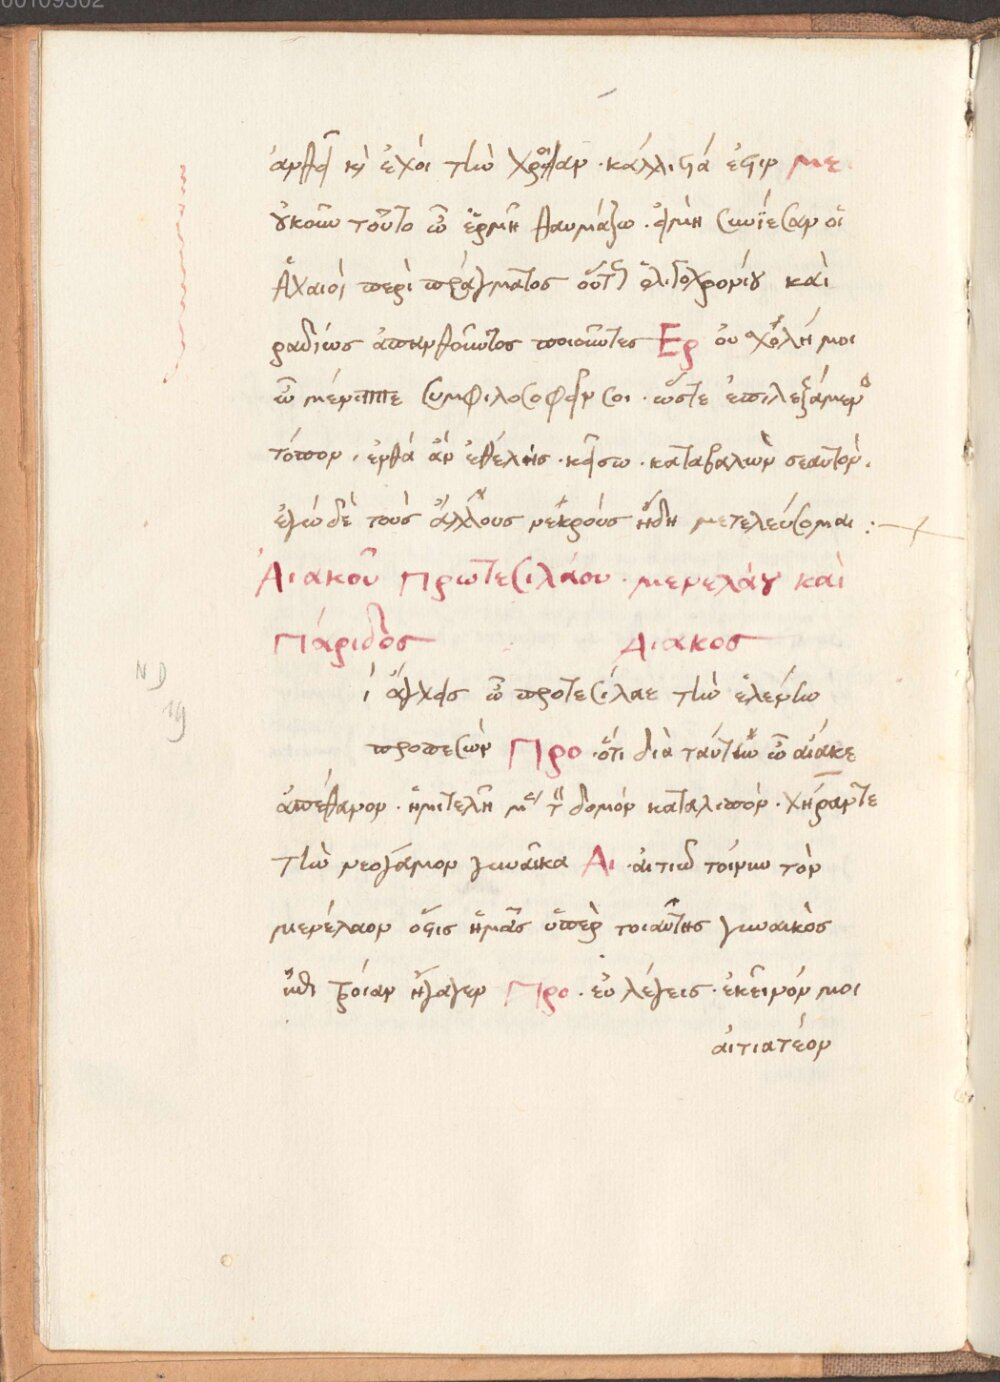 00109302
ἀνθῇ κὴ ἔχοι τὴν χροιὰν · κάλλιστά ἐστιν με.
οὐκοῦν τοῦτο ὦ ἑρμῆ θαυμάζω · εἰ μὴ συνίεσαν οἱ
ἀχαιοὶ περὶ πράγματος οὕτως ὀλιγοχρονίου καὶ
ραδίως ἀπανθοῦντος πονοῦντες Ερ οὐ σχολή μοι
ὦ μένιππε συμφιλοσοφεῖν σοι · ὥστε ἐπιλεξάμενος
τόπον, ἔνθα ἂν ἐθέλῃς · κεῖσο · καταβαλὼν σεαυτόν.
ἐγὼ δὲ τοὺς ἄλλους νεκροὺς ἤδη μετελεύσομαι :
Αἰακοῦ Πρωτεσιλάου · μενελάου καὶ
Πάριδος Αιακος
ί ἄγχεις ὦ προτεσίλαε τὴν ἑλένην
προσπεσὼν Προ · ὅτι διὰ ταύτην ὦ αἰάκε
ἀπέθανον · ἡμιτελῆ μὲν τὸν δομὸν καταλιπὸν · χήραν τε
τὴν νεογάμον γυναῖκα Αι · αἰτιῶ τοίνυν τὸν
μενέλαον ὅστις ἡμᾶς ὑπὲρ τοιαύτης γυναικὸς
ἐπὶ τροίαν ἤγαγεν Προ · εὖ λέγεις · ἐκεῖνόν μοι
αἰτιατέον
ND
19